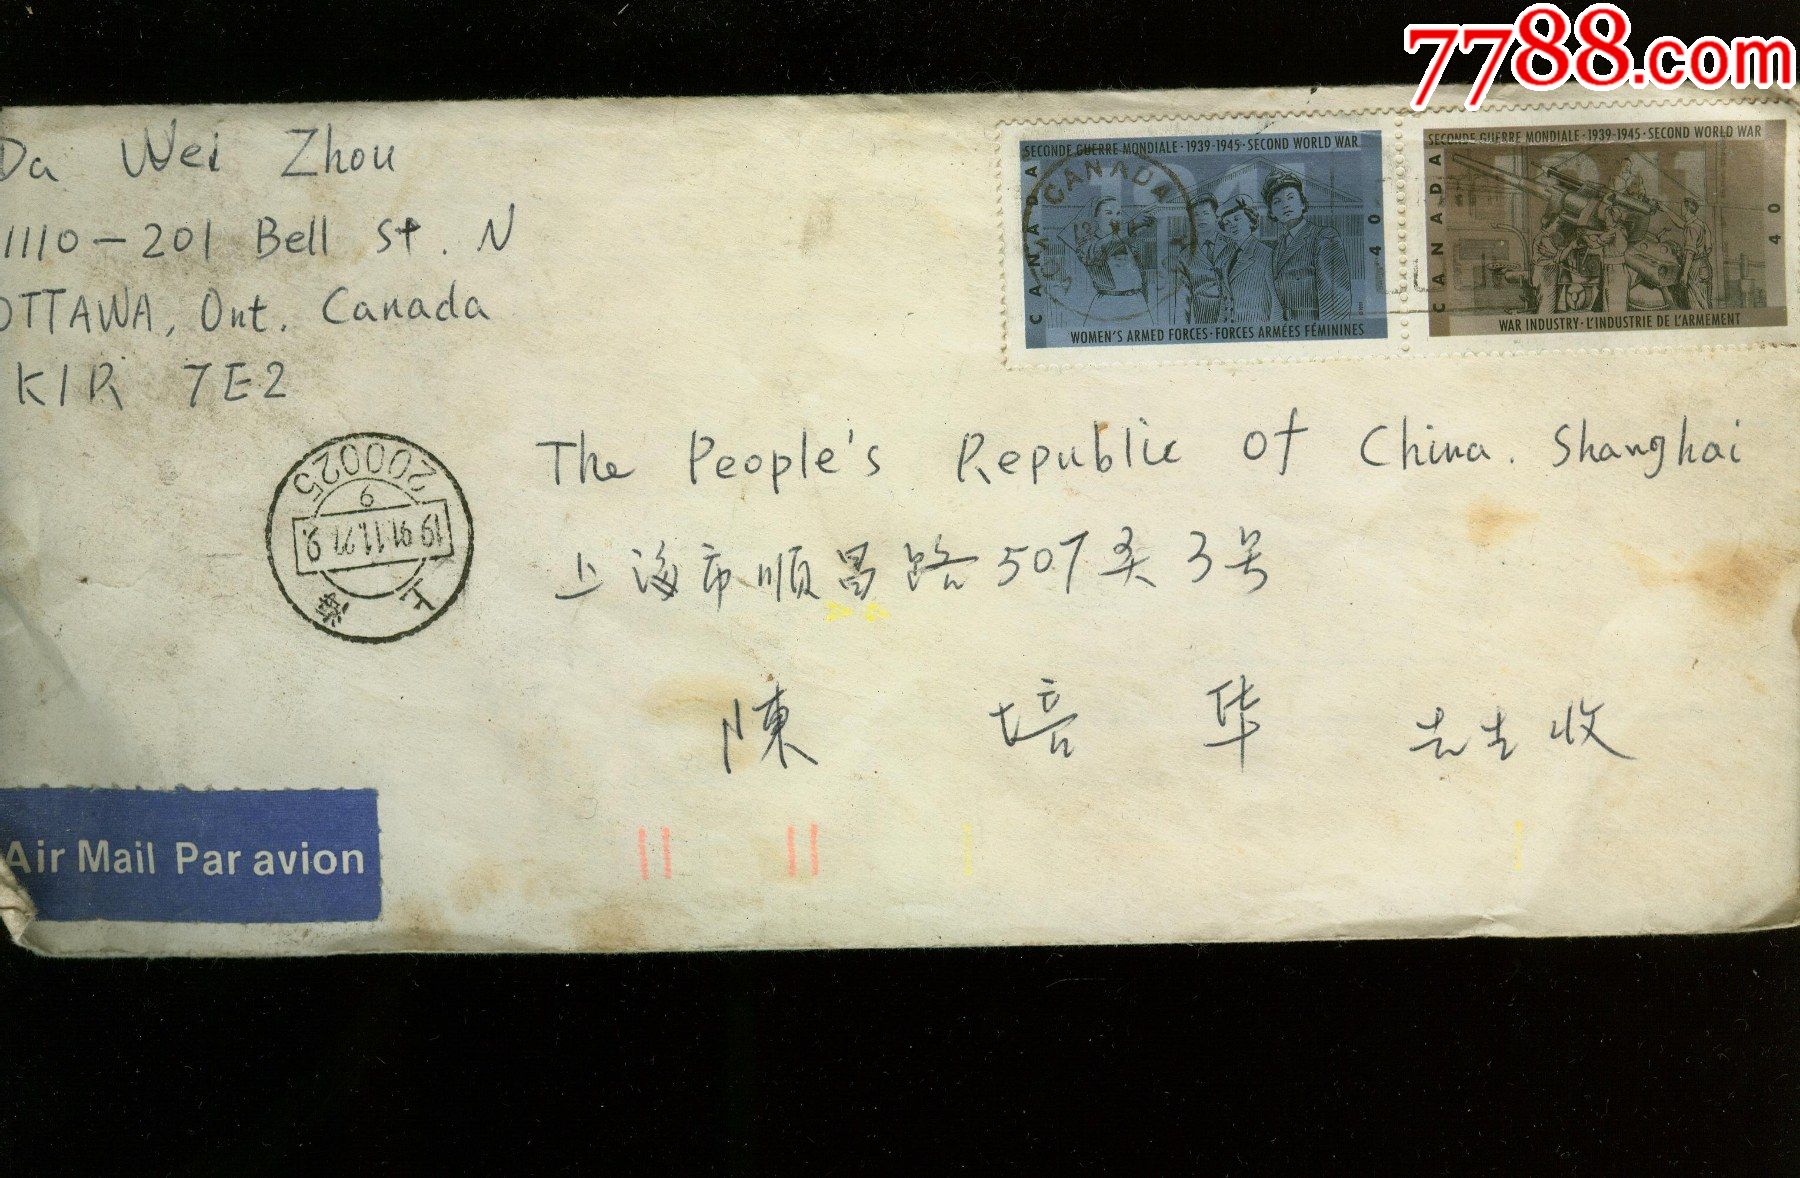 7788.com
Da Wei Zhou
1110-201 Bell St. N
OTTAWA, Ont. Canada
K1R 7E2
SECONDE GUERRE MONDIALE·1939-1945·SECOND WORLD WAR
CANADA
40
WOMEN'S ARMED FORCES·FORCES ARMÉES FÉMININES
SECONDE GUERRE MONDIALE·1939-1945·SECOND WORLD WAR
CANADA
40
WAR INDUSTRY·L'INDUSTRIE DE L'ARMEMENT
CANADA
The People's Republic of China. Shanghai
上海市顺昌路507弄3号
陳培华先生收
200025
上海
Air Mail Par avion